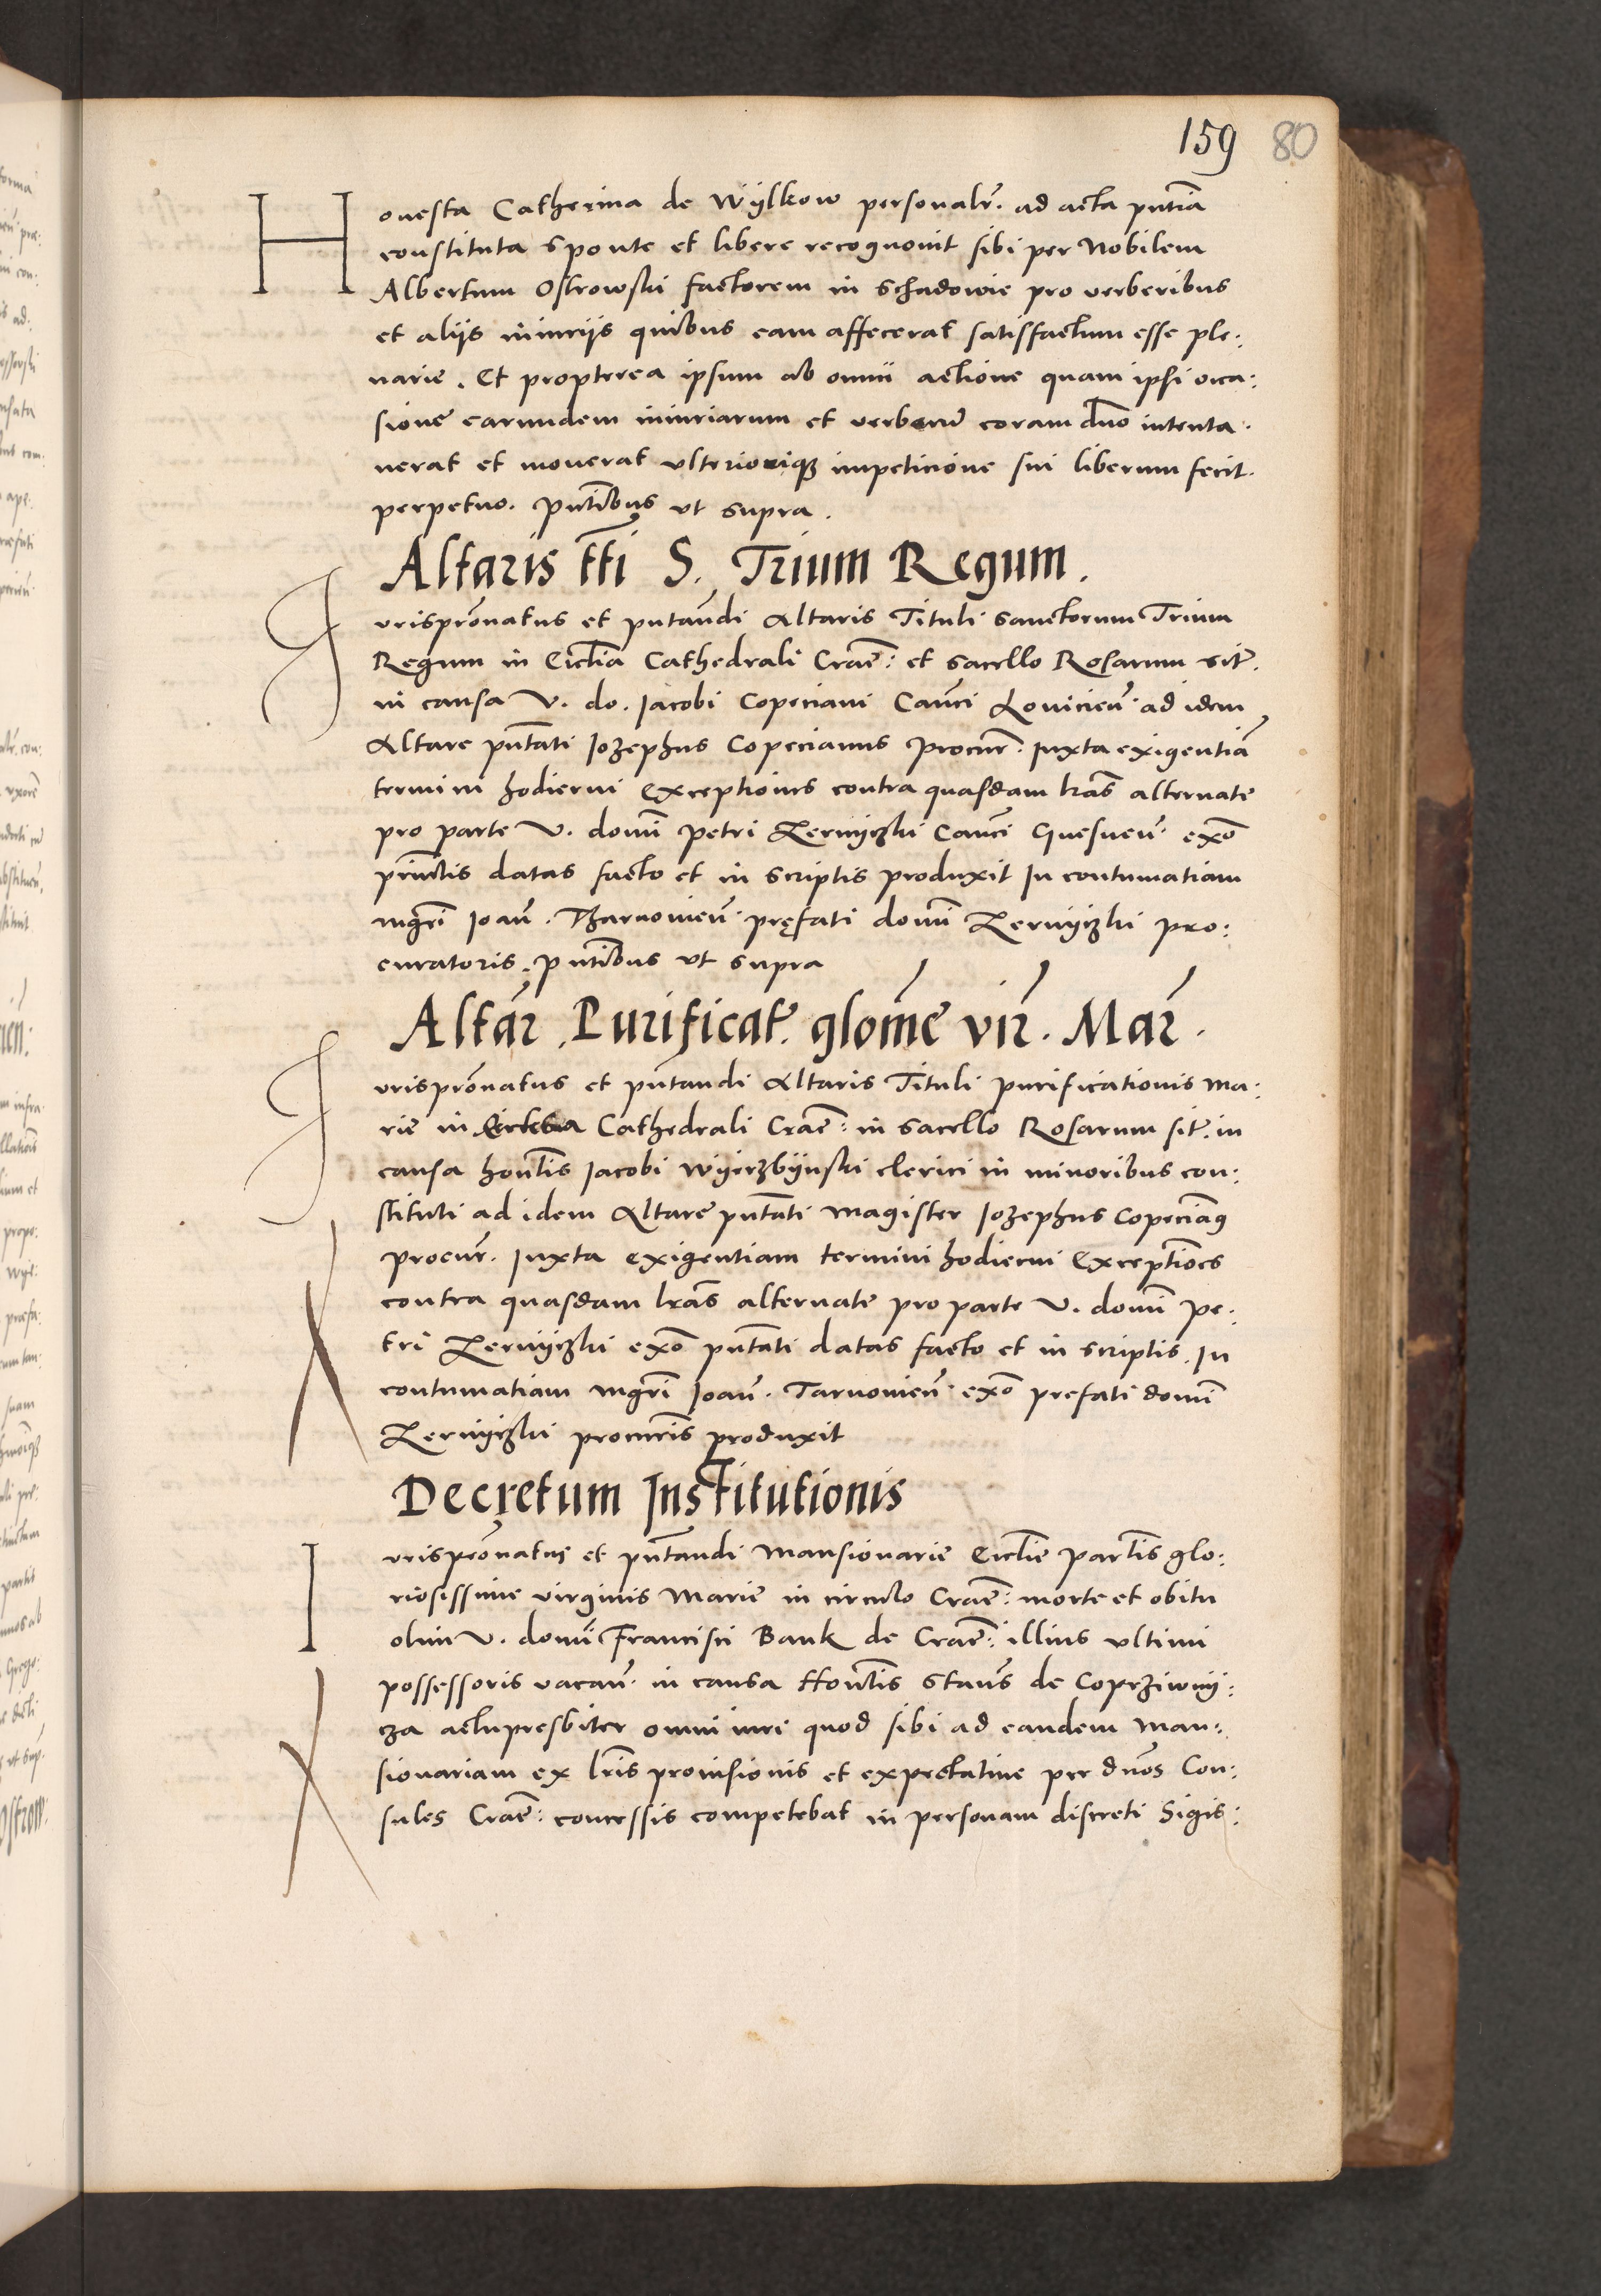 159 80
Honesta Catherina de Wÿlkow personalr̃. ad acta pñtia
constituta sponte et libere recognouit sibi per Nobilem
Albertum Ostrowski factorem in Schadowie pro verberibus
et alijs iniurijs quibus eam affecerat satisfactum esse ple:
narie. Et propterea ipsum ab omni actione quam ipsi occa:
sione earundem iniuriarum et verberũ coram dño intenta.
uerat et mouerat vlteriorique impeticione sui liberum fecit.
perpetuo. pñtibus vt supra.
Altaris tti S. Trium Regum.
Jurisprõnatus et pñtandi Altaris Tituli Sanctorum Trium
Regum in Ecctia Cathedrali Crac̃: et Sacello Rosarum sit̃.
in causa V. do. Iacobi Copeciani Cañci Louicieñ. ad idem
Altare pñtati Iozephus Copecianus procur̃. Iuxta exigentiã
termini hodierni Exceptiones contra quasdam lras̃ alternate
pro parte V. domĩ Petri Zernÿczki Cañci Gnesneñ. exõ
principalis datas facto et in scriptis produxit In contumatiam
mgrĩ Ioañ. Tharnouieñ. pręfati domĩ Zernÿczki pro:
curatoris. pñtibus vt supra
Altar̃. Purificat̃. glome vir̃. Mar̃.
Jurisprõnatus et pñtandi Altaris Tituli purificationis Ma:
rie in Ecclesia Cathedrali Crac̃: in Sacello Rosarum sit̃. in
causa hontĩs Iacobi Wyerzbÿnski clerici in minoribus con:
stituti ad idem Altare pñtati Magister Iozephus Copecianus
procur̃. Iuxta exigentiam termini hodierni Exceptiões
contra quasdam lras̃ alternate pro parte V. domĩ Pe:
tri Zernÿczki exõ pñtati datas facto et in scriptis. In
contumatiam mgrĩ Ioañ. Tarnouieñ. exõ prefati domĩ
Zernÿczki procuris̃ produxit
Decretum Institutionis
Iurisprõnatus et pñtandi Mansionarie Ecctie partis̃ glo:
riosissime virginis Marie in circulo Crac̃: morte et obitu
olim V. domĩ Francisci Bank de Crac̃: illius vltimi
possessoris vacañ. in causa Hontĩs Stañs de Coprziwnÿ:
cza actu presbiter omni iuri quod sibi ad eandem Man:
sionariam ex lris̃ prouisionis et expectatiue per dños Con:
sules Crac̃: concessis competebat in personam discreti Sigis: